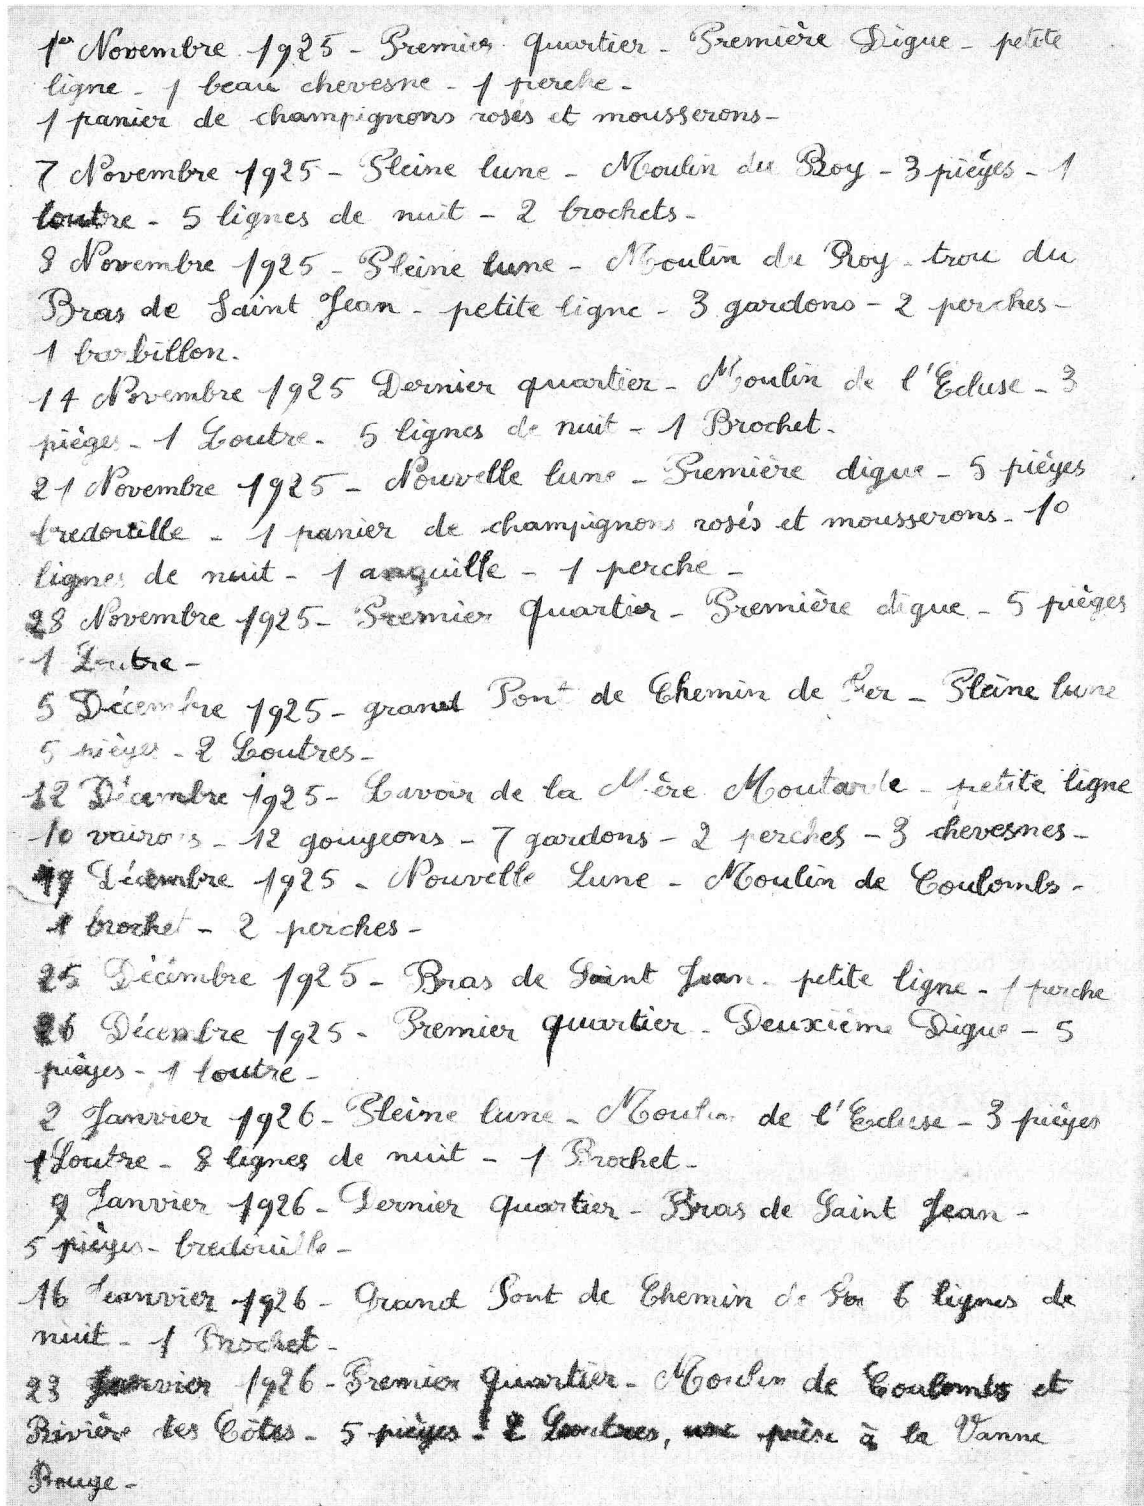 1er Novembre 1925 - Premier quartier - Première Digue - petite
ligne - 1 beau chevesne - 1 perche -
1 panier de champignons rosés et mousserons -
7 Novembre 1925 - Pleine lune - Moulin du Roy - 3 pièges - 1
loutre - 5 lignes de nuit - 2 brochets -
8 Novembre 1925 - Pleine lune - Moulin du Roy - trou du
Bras de Saint Jean - petite ligne - 3 gardons - 2 perches -
1 barbillon.
14 Novembre 1925 Dernier quartier - Moulin de l'Ecluse - 3
pièges - 1 Loutre - 5 lignes de nuit - 1 Brochet -
21 Novembre 1925 - Nouvelle lune - Première digue - 5 pièges
bredouille - 1 panier de champignons rosés et mousserons - 10
lignes de nuit - 1 anguille - 1 perche -
28 Novembre 1925 - Premier Quartier - Première digue - 5 pièges
1 Loutre -
5 Décembre 1925 - grand Pont de Chemin de Fer - Pleine lune
5 pièges - 2 Loutres -
12 Décembre 1925 - Lavoir de la Mère Moutarde - petite ligne
10 vairons - 12 goujeons - 7 gardons - 2 perches - 3 chevesnes -
19 Décembre 1925 - Nouvelle Lune - Moulin de Coulombs -
1 brochet - 2 perches -
25 Décembre 1925 - Bras de Saint Jean - petite ligne - 1 perche
26 Décembre 1925 - Premier quartier - Deuxième Digue - 5
pièges - 1 loutre -
2 Janvier 1926 - Pleine lune - Moulin de l'Ecluse - 3 pièges
1 Loutre - 8 lignes de nuit - 1 Brochet -
9 Janvier 1926 - Dernier Quartier - Bras de Saint Jean -
5 pièges - bredouille -
16 Janvier 1926 - Grand Pont de Chemin de Fer 6 lignes de
nuit - 1 Brochet -
23 Janvier 1926 - Premier Quartier - Moulin de Coulombs et
Rivière des Côtes - 5 pièges - 2 Loutres, une prise à la Vanne
Rouge -